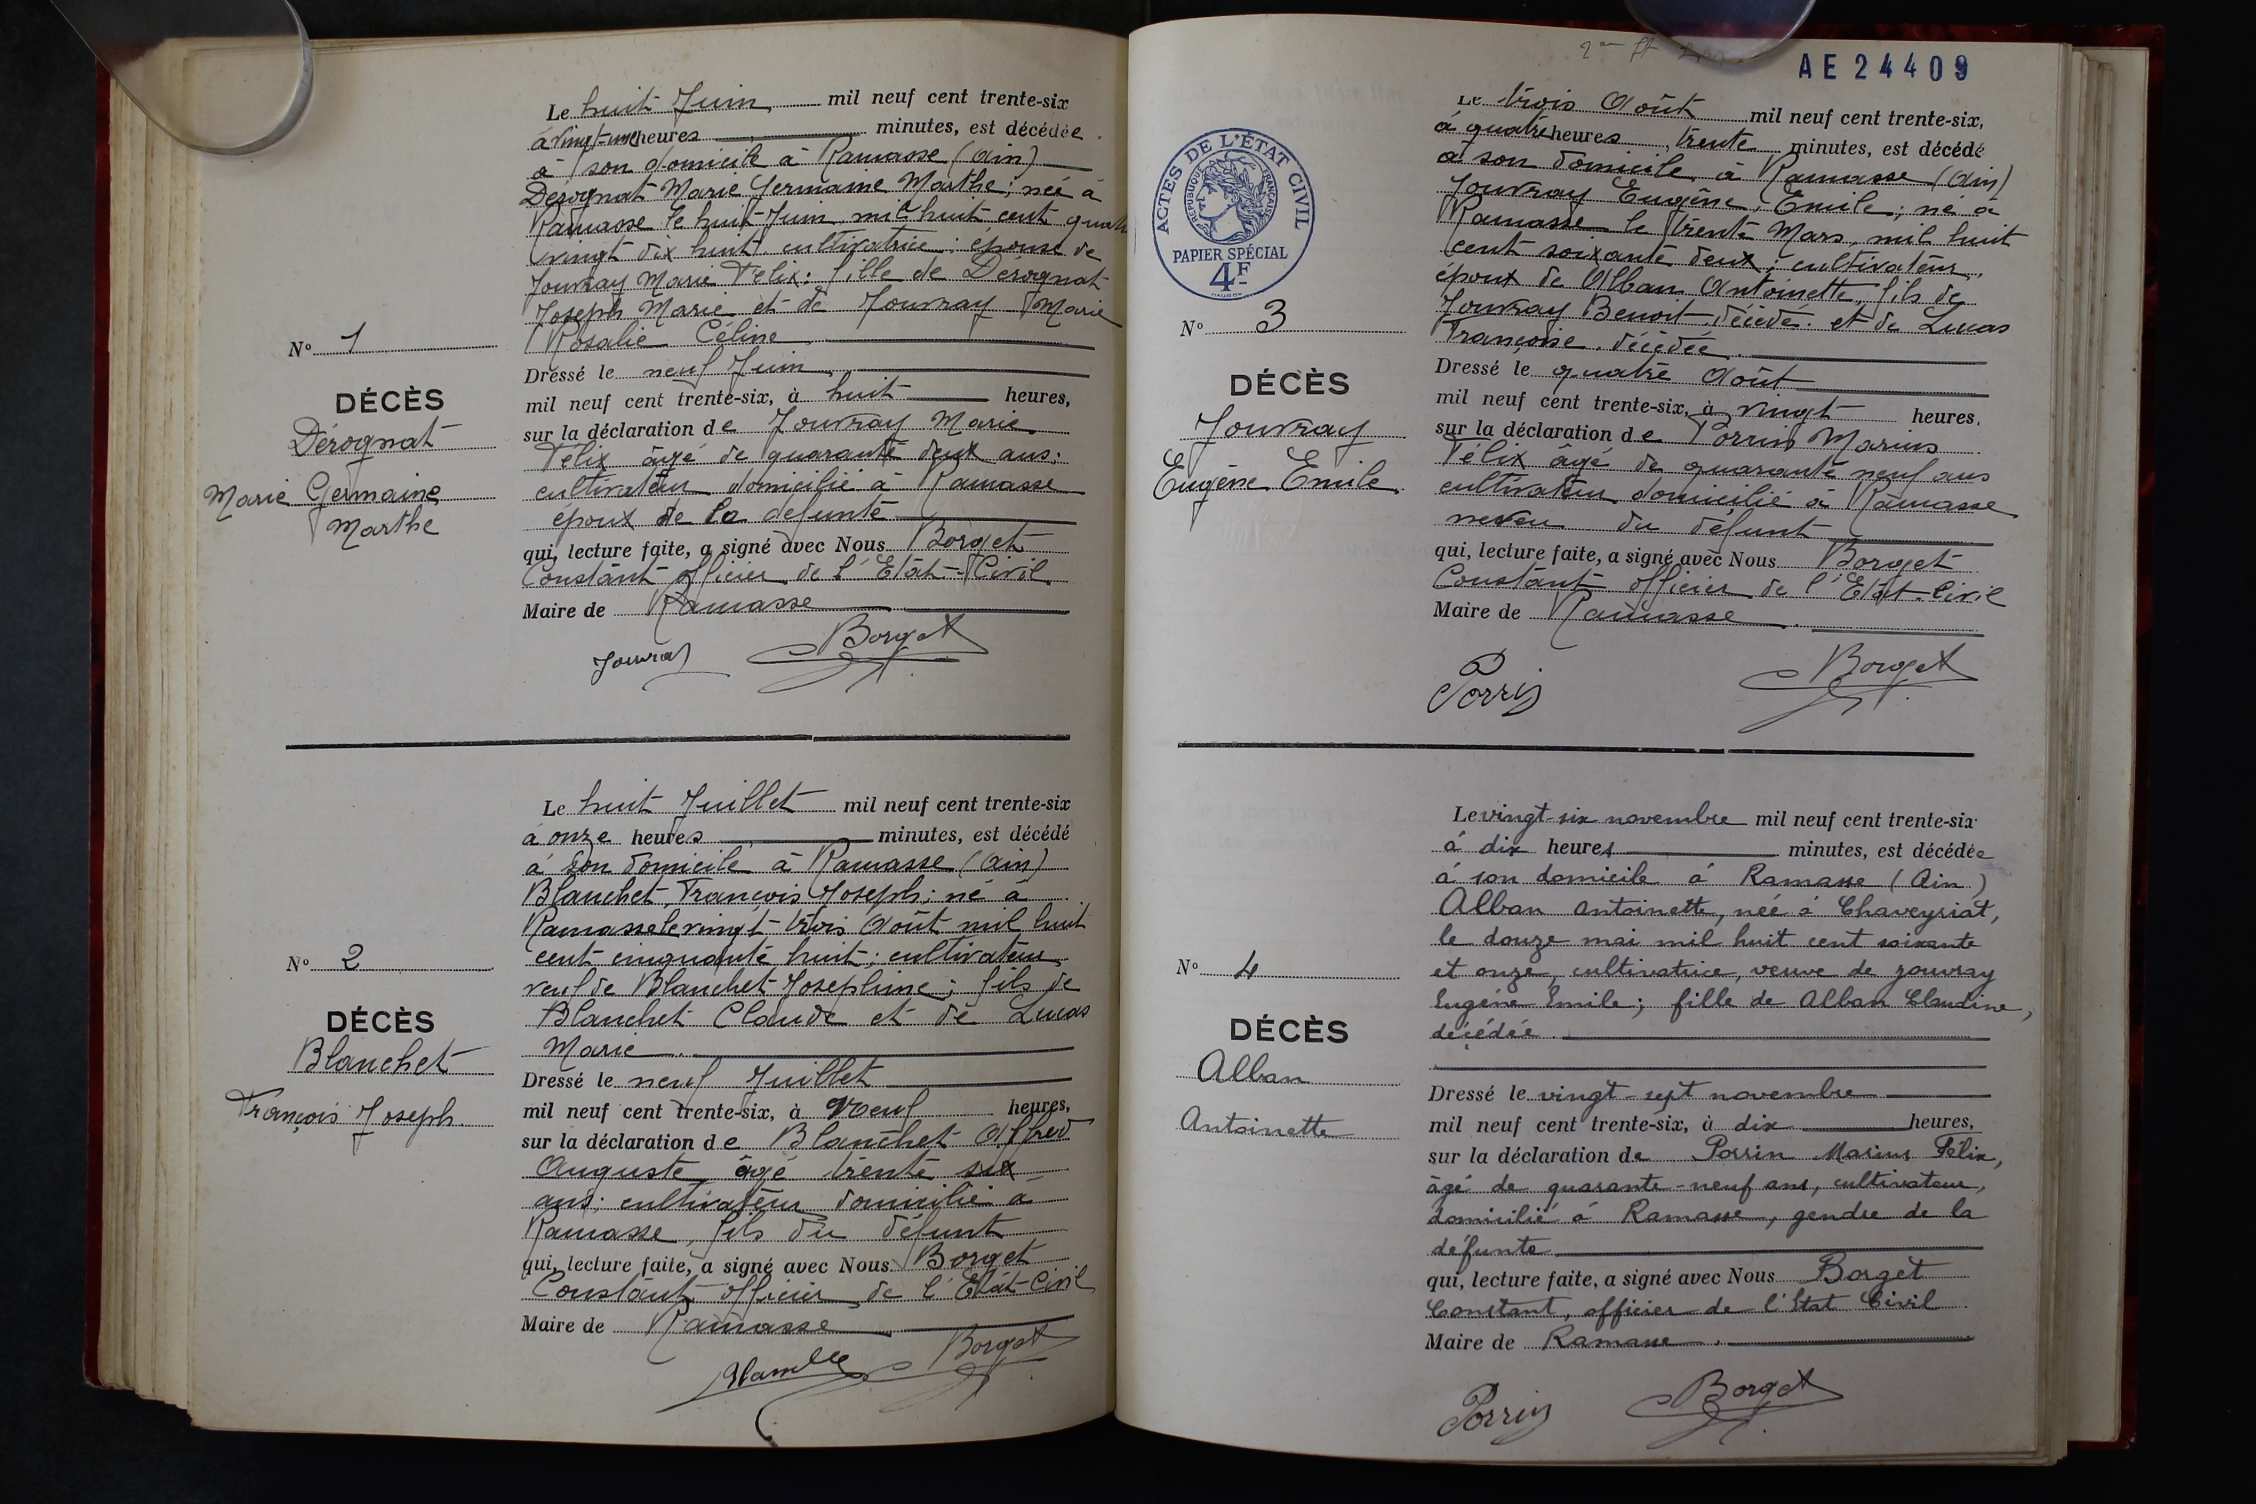 Le huit Juin mil neuf cent trente-six
à vingt-une heures minutes, est décédée
à son domicile à Ramasse (Ain)
Dérognat Marie Germaine Marthe; née à
Ramasse le huit Juin mil huit cent quatre
vingt dix huit. cultivatrice; épouse de
Jouvray Marie Félix; fille de Dérognat
Joseph Marie et de Jouvray Marie
Rosalie Céline
Dressé le neuf Juin
mil neuf cent trente-six, à huit heures,
sur la déclaration de Jouvray Marie
Félix âgé de quarante deux ans;
cultivateur domicilié à Ramasse
époux de la défunte
qui, lecture faite, a signé avec Nous Borget
Constant officier de l'Etat-Civil
Maire de Ramasse
Jouvray Borget
N° 1
DÉCÈS
Dérognat
Marie Germaine
Marthe
Le huit Juillet mil neuf cent trente-six
à onze heures minutes, est décédé
à son domicile à Ramasse (Ain)
Blanchet François Joseph; né à
Ramasse le vingt-trois Août mil huit
cent cinquante huit; cultivateur
veuf de Blanchet Joséphine; fils de
Blanchet Claude et de Lucas
Marie
Dressé le neuf Juillet
mil neuf cent trente-six, à neuf heures,
sur la déclaration de Blanchet Alfred
Auguste âgé trente six
ans; cultivateur domicilié à
Ramasse, fils du défunt
qui, lecture faite, a signé avec Nous Borget
Constant officier de l'Etat-Civil
Maire de Ramasse
Borget
N° 2
DÉCÈS
Blanchet
François Joseph
AE 24409
ACTES DE L'ÉTAT CIVIL
RÉPUBLIQUE FRANÇAISE
PAPIER SPÉCIAL
4F
Le trois Août mil neuf cent trente-six,
à quatre heures, trente minutes, est décédé
à son domicile à Ramasse (Ain)
Jouvray Eugène, Emile; né à
Ramasse le trente Mars, mil huit
cent soixante deux; cultivateur,
époux de Alban Antoinette, fils de
Jouvray Benoit, décédé. et de Lucas
Françoise. décédée.
Dressé le quatre Août
mil neuf cent trente-six, à vingt heures.
sur la déclaration de Porrin Marius
Félix âgé de quarante neuf ans
cultivateur domicilié à Ramasse
neveu du défunt
qui, lecture faite, a signé avec Nous Borget
Constant officier de l'Etat-Civil
Maire de Ramasse.
Porrin Borget
N° 3
DÉCÈS
Jouvray
Eugène Emile
Le vingt-six novembre mil neuf cent trente-six
à dix heures minutes, est décédée
à son domicile à Ramasse (Ain)
Alban Antoinette, née à Chaveyriat,
le douze mai mil huit cent soixante
et onze, cultivatrice, veuve de Jouvray
Eugène Emile; fille de Alban Claudine,
décédée.
Dressé le vingt-sept novembre
mil neuf cent trente-six, à dix heures,
sur la déclaration de Porrin Marius Félix,
âgé de quarante-neuf ans, cultivateur,
domicilié à Ramasse, gendre de la
défunte
qui, lecture faite, a signé avec Nous Borget
Constant, officier de l'Etat Civil
Maire de Ramasse.
Porrin Borget
N° 4
DÉCÈS
Alban
Antoinette